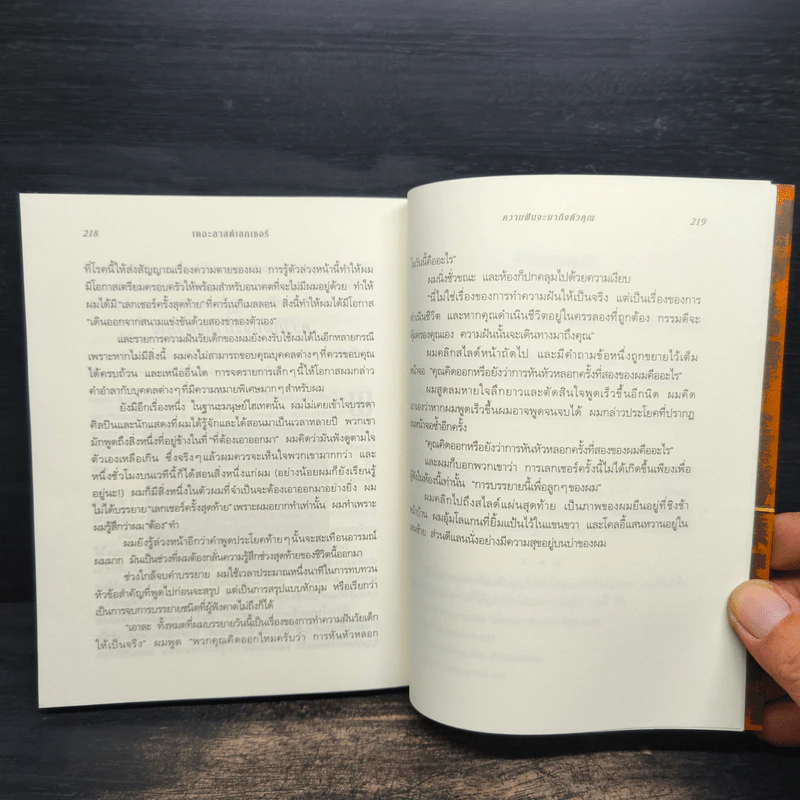 218
เดอะลาสต์เลกเชอร์
ที่โรคนี้ให้ส่งสัญญาณเรื่องความตายของผม การรู้ตัวล่วงหน้านี้ทำให้ผม
มีโอกาสเตรียมครอบครัวให้พร้อมสำหรับอนาคตที่จะไม่มีผมอยู่ด้วย ทำให้
ผมได้มี "เลกเชอร์ครั้งสุดท้าย" ที่คาร์เนกีเมลลอน สิ่งนี้ทำให้ผมได้มีโอกาส
"เดินออกจากสนามแข่งขันด้วยสองขาของตัวเอง"
และรายการความฝันวัยเด็กของผมยังคงรับใช้ผมได้ในอีกหลายกรณี
เพราะหากไม่มีสิ่งนี้ ผมคงไม่สามารถขอบคุณบุคคลต่างๆ ที่ควรขอบคุณ
ได้ครบถ้วน และเหนืออื่นใด การจดรายการเล็กๆ นี้ให้โอกาสผมกล่าว
คำอำลากับบุคคลต่างๆ ที่มีความหมายพิเศษมากๆ สำหรับผม
ยังมีอีกเรื่องหนึ่ง ในฐานะมนุษย์ไฮเทคนั้น ผมไม่เคยเข้าใจบรรดา
ศิลปินและนักแสดงที่ผมได้รู้จักและได้สอนมาเป็นเวลาหลายปี พวกเขา
มักพูดถึงสิ่งหนึ่งที่อยู่ข้างในที่ "ที่ต้องเอาออกมา" ผมคิดว่ามันฟังดูตามใจ
ตัวเองเหลือเกิน ซึ่งจริงๆ แล้วผมควรจะเห็นใจพวกเขามากกว่า และ
หนึ่งชั่วโมงบนเวทีนี้ก็ได้สอนสิ่งหนึ่งแก่ผม (อย่างน้อยผมก็ยังเรียนรู้
อยู่นะ!) ผมก็มีสิ่งหนึ่งในตัวผมที่จำเป็นจะต้องเอาออกมาอย่างยิ่ง ผม
ไม่ได้บรรยาย "เลกเชอร์ครั้งสุดท้าย" เพราะผมอยากทำเท่านั้น ผมทำเพราะ
ผมรู้สึกว่าผม "ต้อง" ทำ
ผมยังรู้ล่วงหน้าอีกว่าคำพูดประโยคท้ายๆ นั้นจะสะเทือนอารมณ์
ผมมาก มันเป็นช่วงที่ผมต้องกลั่นความรู้สึกช่วงสุดท้ายของชีวิตนี้ออกมา
ช่วงใกล้จบคำบรรยาย ผมใช้เวลาประมาณหนึ่งนาทีในการทบทวน
หัวข้อสำคัญที่พูดไปก่อนจะสรุป แต่เป็นการสรุปแบบหักมุม หรือเรียกว่า
เป็นการจบการบรรยายชนิดที่ผู้ฟังคาดไม่ถึงก็ได้
"เอาละ ทั้งหมดที่ผมบรรยายวันนี้เป็นเรื่องของการทำความฝันวัยเด็ก
ให้เป็นจริง" ผมพูด "พวกคุณคิดออกไหมครับว่า การหันหัวหลอก
ความฝันจะมาถึงตัวคุณ
219
ในวันนี้คืออะไร"
ผมนิ่งชั่วขณะ และห้องก็ปกคลุมไปด้วยความเงียบ
"นี่ไม่ใช่เรื่องของการทำความฝันให้เป็นจริง แต่เป็นเรื่องของการ
ดำเนินชีวิต และหากคุณดำเนินชีวิตอยู่ในครรลองที่ถูกต้อง กรรมดีจะ
คุ้มครองคุณเอง ความฝันนั้นจะเดินทางมาถึงคุณ"
ผมคลิกสไลด์หน้าถัดไป และมีคำถามข้อหนึ่งถูกขยายไว้เต็ม
หน้าจอ "คุณคิดออกหรือยังว่าการหันหัวหลอกครั้งที่สองของผมคืออะไร"
ผมสูดลมหายใจลึกยาวและตัดสินใจพูดเร็วขึ้นอีกนิด ผมคิด
เอาเองว่าหากผมพูดเร็วขึ้นผมอาจพูดจนจบได้ ผมกล่าวประโยคที่ปรากฏ
บนหน้าจอซ้ำอีกครั้ง
"คุณคิดออกหรือยังว่าการหันหัวหลอกครั้งที่สองของผมคืออะไร"
และผมก็บอกพวกเขาว่า การเลกเชอร์ครั้งนี้ไม่ได้เกิดขึ้นเพียงเพื่อ
ผู้ฟังในห้องนี้เท่านั้น "การบรรยายนี้เพื่อลูกๆ ของผม"
ผมคลิกไปถึงสไลด์แผ่นสุดท้าย เป็นภาพของผมยืนอยู่ที่ชิงช้า
หน้าบ้าน ผมอุ้มโลแกนที่ยิ้มแป้นไว้ในแขนขวา และโคลอี้แสนหวานอยู่ใน
แขนซ้าย ส่วนดีแลนนั่งอย่างมีความสุขอยู่บนบ่าของผม